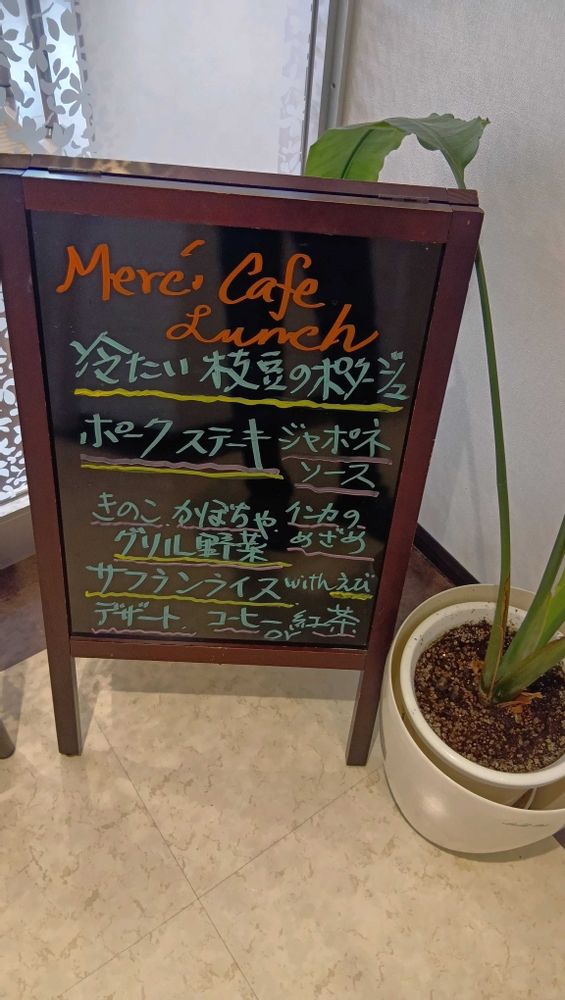 Merci Cafe
Lunch
冷たい 枝豆のポタージュ
ポークステーキ ジャポネ
ソース
きのこ.かぼちゃ.インカの
グリル野菜 めざめ
サフランライス with えび
デザート. コーヒー or 紅茶